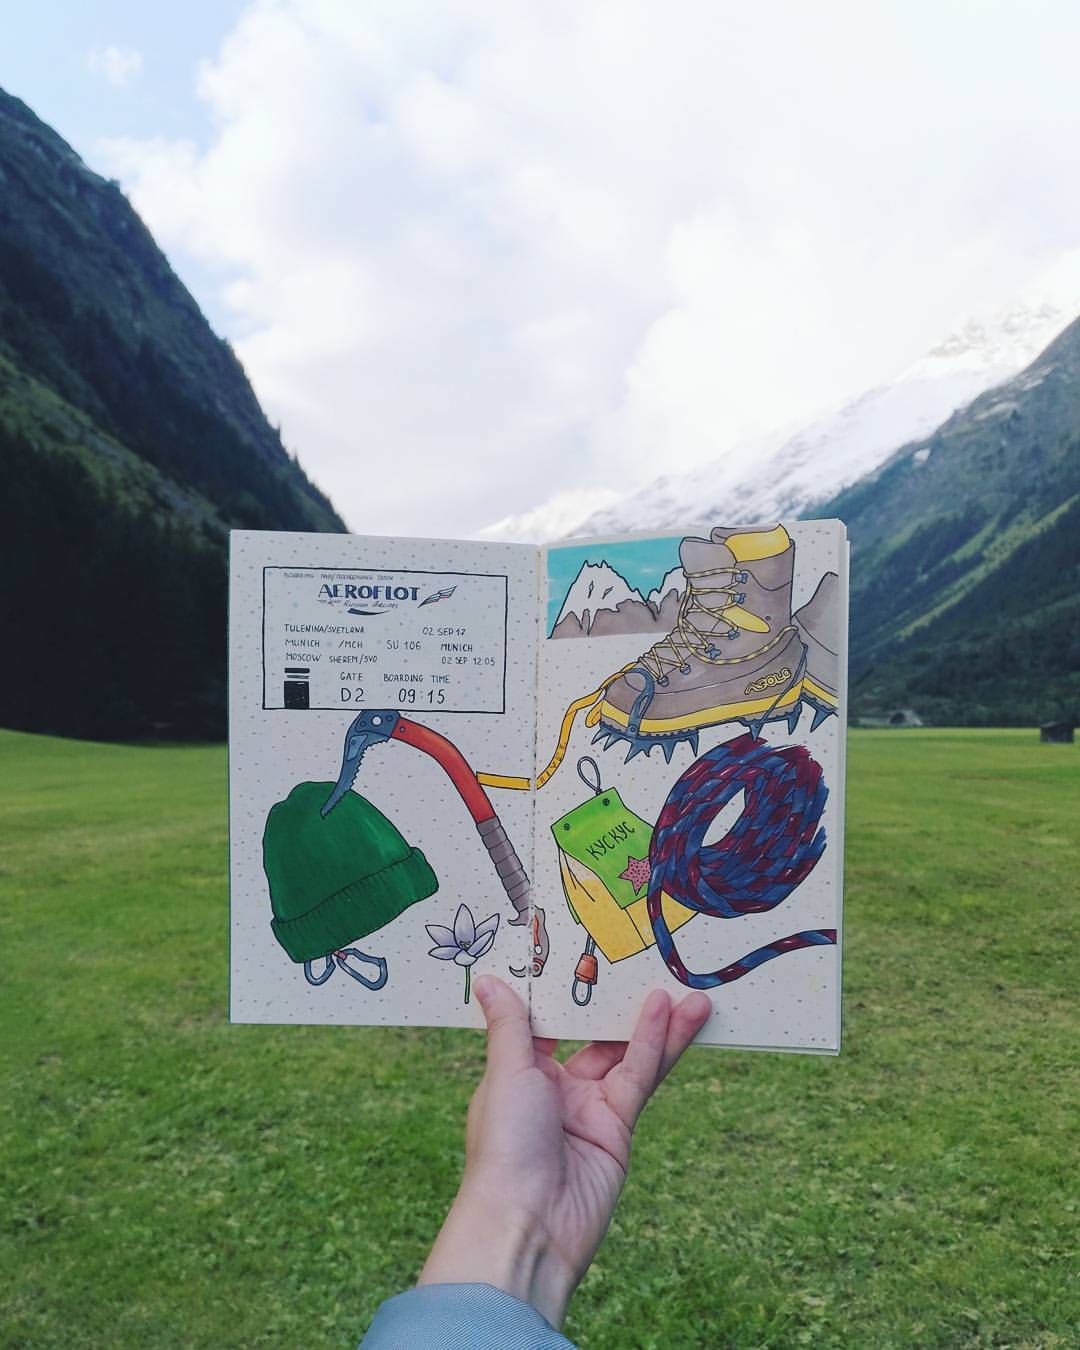 AEROFLOT
Russian Airlines
TULENINA/SVETLANA 02 SEP 17
MUNICH /MCH SU 106 MUNICH
MOSCOW SHEREM/SVO 02 SEP 12:05
GATE BOARDING TIME
D2 09:15
КУСКУС